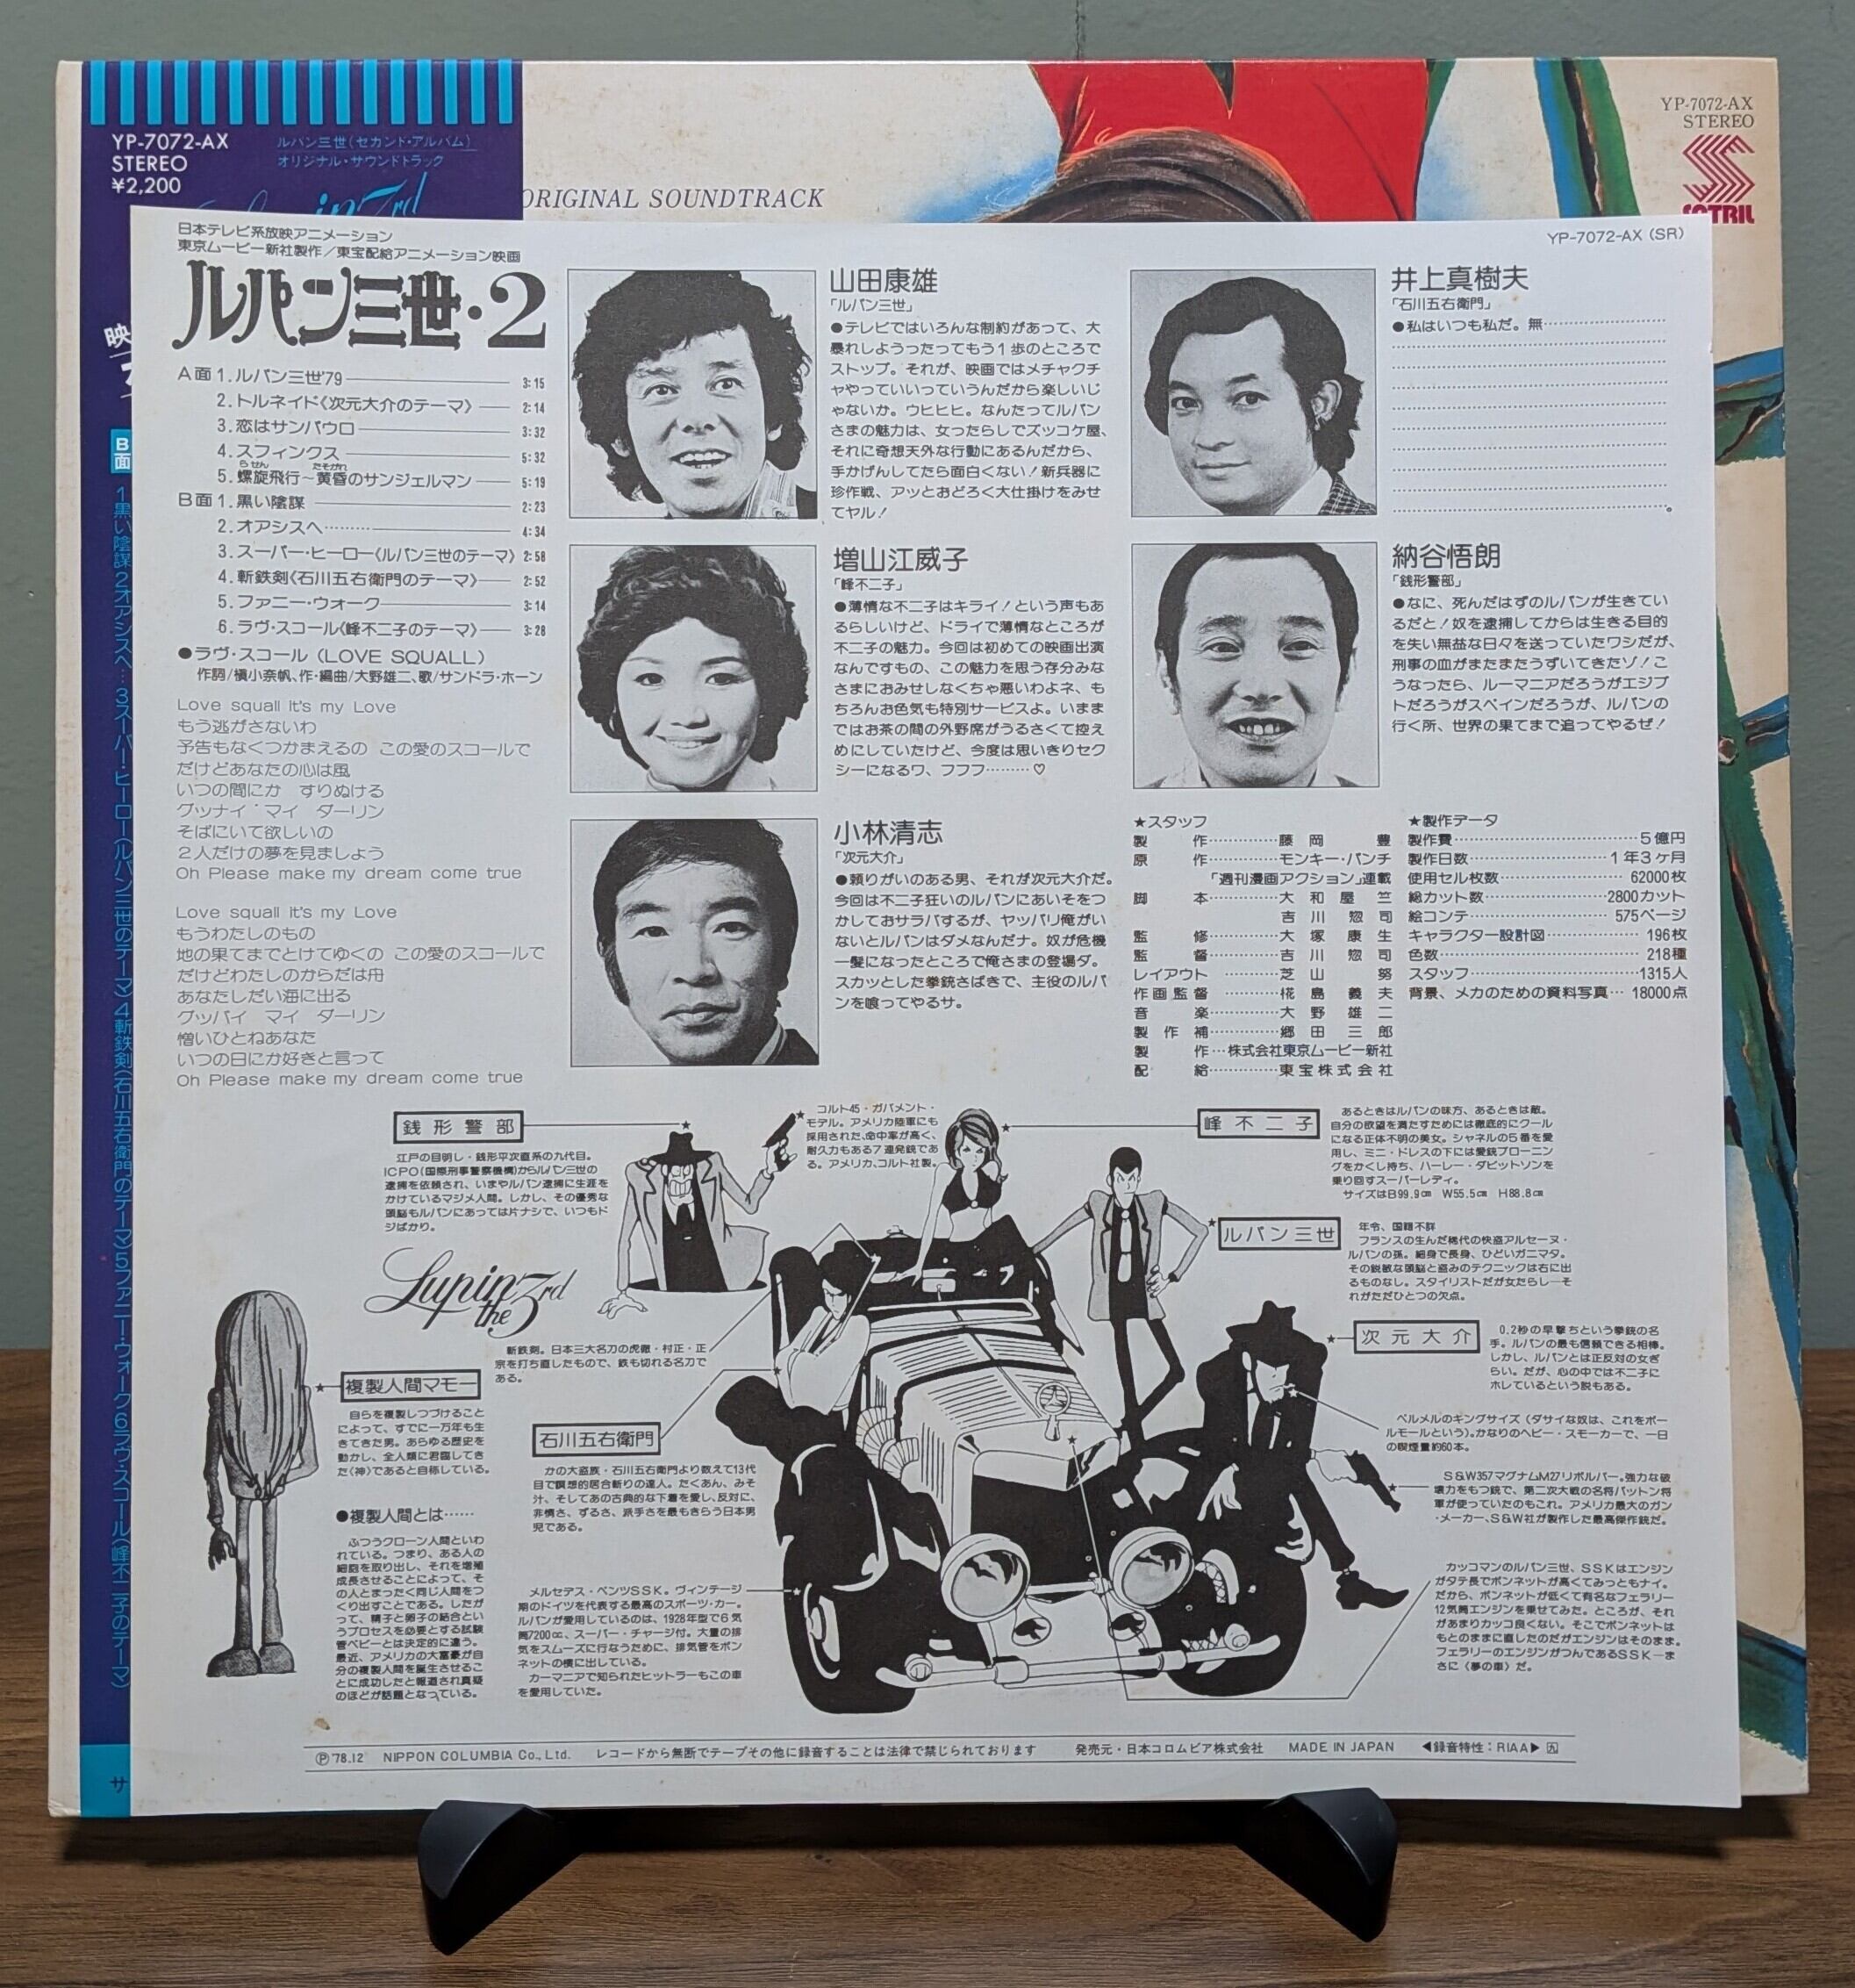 YP-7072-AX
STEREO
¥2,200
ルパン三世(セカンド・アルバム)
オリジナル・サウンドトラック
ORIGINAL SOUNDTRACK
YP-7072-AX
STEREO
B面
1黒い陰謀 2オアシスへ… 3スーパー・ヒーロー(ルパン三世のテーマ) 4斬鉄剣(石川五右衛門のテーマ) 5ファニー・ウォーク 6ラヴ・スコール(峰不二子のテーマ)
サ
YP-7072-AX (SR)
日本テレビ系放映アニメーション
東京ムービー新社製作/東宝配給アニメーション映画
ルパン三世・2
A面 1.ルパン三世'79 3:15
2.トルネイド《次元大介のテーマ》 2:14
3.恋はサンパウロ 3:32
4.スフィンクス 5:32
らせん たそがれ
5.螺旋飛行〜黄昏のサンジェルマン 5:19
B面 1.黒い陰謀 2:23
2.オアシスへ……… 4:34
3.スーパー・ヒーロー《ルパン三世のテーマ》 2:58
4.斬鉄剣《石川五右衛門のテーマ》 2:52
5.ファニー・ウォーク 3:14
6.ラヴ・スコール《峰不二子のテーマ》 3:28
●ラヴ・スコール (LOVE SQUALL)
作詞/槇小奈帆、作・編曲/大野雄二、歌/サンドラ・ホーン
Love squall it's my Love
もう逃がさないわ
予告もなくつかまえるの この愛のスコールで
だけどあなたの心は風
いつの間にか すりぬける
グッナイ マイ ダーリン
そばにいて欲しいの
2人だけの夢を見ましょう
Oh Please make my dream come true
Love squall it's my Love
もうわたしのもの
地の果てまでとけてゆくの この愛のスコールで
だけどわたしのからだは舟
あなたしだい海に出る
グッバイ マイ ダーリン
憎いひとねあなた
いつの日にか好きと言って
Oh Please make my dream come true
山田康雄
「ルパン三世」
●テレビではいろんな制約があって、大
暴れしようったってもう1歩のところで
ストップ。それが、映画ではメチャクチ
ャやっていいっていうんだから楽しいじ
ゃないか。ウヒヒヒ。なんたってルパン
さまの魅力は、女ったらしでズッコケ屋、
それに奇想天外な行動にあるんだから、
手かげんしてたら面白くない!新兵器に
珍作戦、アッとおどろく大仕掛けをみせ
てヤル!
増山江威子
「峰不二子」
●薄情な不二子はキライ!という声もあ
るらしいけど、ドライで薄情なところが
不二子の魅力。今回は初めての映画出演
なんですもの、この魅力を思う存分みな
さまにおみせしなくちゃ悪いわよネ、も
ちろんお色気も特別サービスよ。いまま
ではお茶の間の外野席がうるさくて控え
めにしていたけど、今度は思いきりセク
シーになるワ、フフフ………♡
小林清志
「次元大介」
●頼りがいのある男、それが次元大介だ。
今回は不二子狂いのルパンにあいそをつ
かしておサラバするが、ヤッパリ俺がい
ないとルパンはダメなんだナ。奴が危機
一髪になったところで俺さまの登場ダ。
スカッとした拳銃さばきで、主役のルパ
ンを喰ってやるサ。
井上真樹夫
「石川五右衛門」
●私はいつも私だ。無………………
…………………………………。
納谷悟朗
「銭形警部」
●なに、死んだはずのルパンが生きてい
るだと!奴を逮捕してからは生きる目的
を失い無益な日々を送っていたワシだが、
刑事の血がまたまたうずいてきたゾ!こ
うなったら、ルーマニアだろうがエジプ
トだろうがスペインだろうが、ルパンの
行く所、世界の果てまで追ってやるぜ!
★スタッフ
製作………藤岡豊
原作………モンキー・パンチ
「週刊漫画アクション」連載
脚本………大和屋竺
吉川惣司
監修………大塚康生
監督………吉川惣司
レイアウト………芝山努
作画監督………椛島義夫
音楽………大野雄二
製作補………郷田三郎
製作…株式会社東京ムービー新社
配給………東宝株式会社
★製作データ
製作費………5億円
製作日数………1年3ヶ月
使用セル枚数………62000枚
総カット数………2800カット
絵コンテ………575ページ
キャラクター設計図………196枚
色数………218種
スタッフ………1315人
背景、メカのための資料写真…18000点
銭形警部
江戸の目明し・銭形平次直系の九代目。
ICPO(国際刑事警察機構)からルパン三世の
逮捕を依頼され、いまやルパン逮捕に生涯を
かけているマジメ人間。しかし、その優秀な
頭脳もルパンにあっては片ナシで、いつもド
ジばかり。
コルト45・ガバメント・
モデル。アメリカ陸軍にも
採用された、命中率が高く、
耐久力もある7連発銃であ
る。アメリカ、コルト社製。
峰不二子
あるときはルパンの味方、あるときは敵。
自分の欲望を満たすためには徹底的にクール
になる正体不明の美女。シャネルの5番を愛
用し、ミニ・ドレスの下には愛銃ブローニン
グをかくし持ち、ハーレー・ダビットソンを
乗り回すスーパーレディ。
サイズはB99.9㎝ W55.5㎝ H88.8㎝
ルパン三世
年令、国籍不詳
フランスの生んだ稀代の怪盗アルセーヌ・
ルパンの孫。細身で長身、ひどいガニマタ。
その鋭敏な頭脳と盗みのテクニックは右に出
るものなし。スタイリストだが女たらし―そ
れがただひとつの欠点。
次元大介
0.2秒の早撃ちという拳銃の名
手。ルパンの最も信頼できる相棒。
しかし、ルパンとは正反対の女ぎ
らい。だが、心の中では不二子に
ホレているという説もある。
ペルメルのキングサイズ(ダサイな奴は、これをポー
ルモールという)。かなりのヘビー・スモーカーで、一日
の喫煙量約60本。
S&W357マグナムM27リボルバー。強力な破
壊力をもつ銃で、第二次大戦の名将パットン将
軍が使っていたのもこれ。アメリカ最大のガン
・メーカー、S&W社が製作した最高傑作銃だ。
カッコマンのルパン三世、SSKはエンジン
がタテ長でボンネットが高くてみっともナイ。
だから、ボンネットが低くて有名なフェラリー
12気筒エンジンを乗せてみた。ところが、それ
があまりカッコ良くない。そこでボンネットは
もとのままに直したのだがエンジンはそのまま。
フェラリーのエンジンがつんであるSSK―ま
さに〈夢の車〉だ。
Lupin the 3rd
斬鉄剣。日本三大名刀の虎徹・村正・正
宗を打ち直したもので、鉄も切れる名刀で
ある。
石川五右衛門
かの大盗族・石川五右衛門より数えて13代
目で瞑想的居合斬りの達人。たくあん、みそ
汁、そしてあの古典的な下着を愛し、反対に、
非情さ、ずるさ、派手さを最もきらう日本男
児である。
複製人間マモー
自らを複製しつづけること
によって、すでに一万年も生
きてきた男。あらゆる歴史を
動かし、全人類に君臨してき
た〈神〉であると自称している。
●複製人間とは……
ふつうクローン人間といわ
れている。つまり、ある人の
細胞を取り出し、それを増殖
成長させることによって、そ
の人とまったく同じ人間をつ
くり出すことである。したが
って、精子と卵子の結合とい
うプロセスを必要とする試験
管ベビーとは決定的に違う。
最近、アメリカの大富豪が自
分の複製人間を誕生させるこ
とに成功したと報道され真疑
のほどが話題となっている。
メルセデス・ベンツSSK。ヴィンテージ
期のドイツを代表する最高のスポーツ・カー。
ルパンが愛用しているのは、1928年型で6気
筒7200㏄、スーパー・チャージ付。大量の排
気をスムーズに行なうために、排気管をボン
ネットの横に出している。
カーマニアで知られたヒットラーもこの車
を愛用していた。
Ⓟ'78.12 NIPPON COLUMBIA Co., Ltd. レコードから無断でテープその他に録音することは法律で禁じられております 発売元・日本コロムビア株式会社 MADE IN JAPAN ◀録音特性:RIAA▶